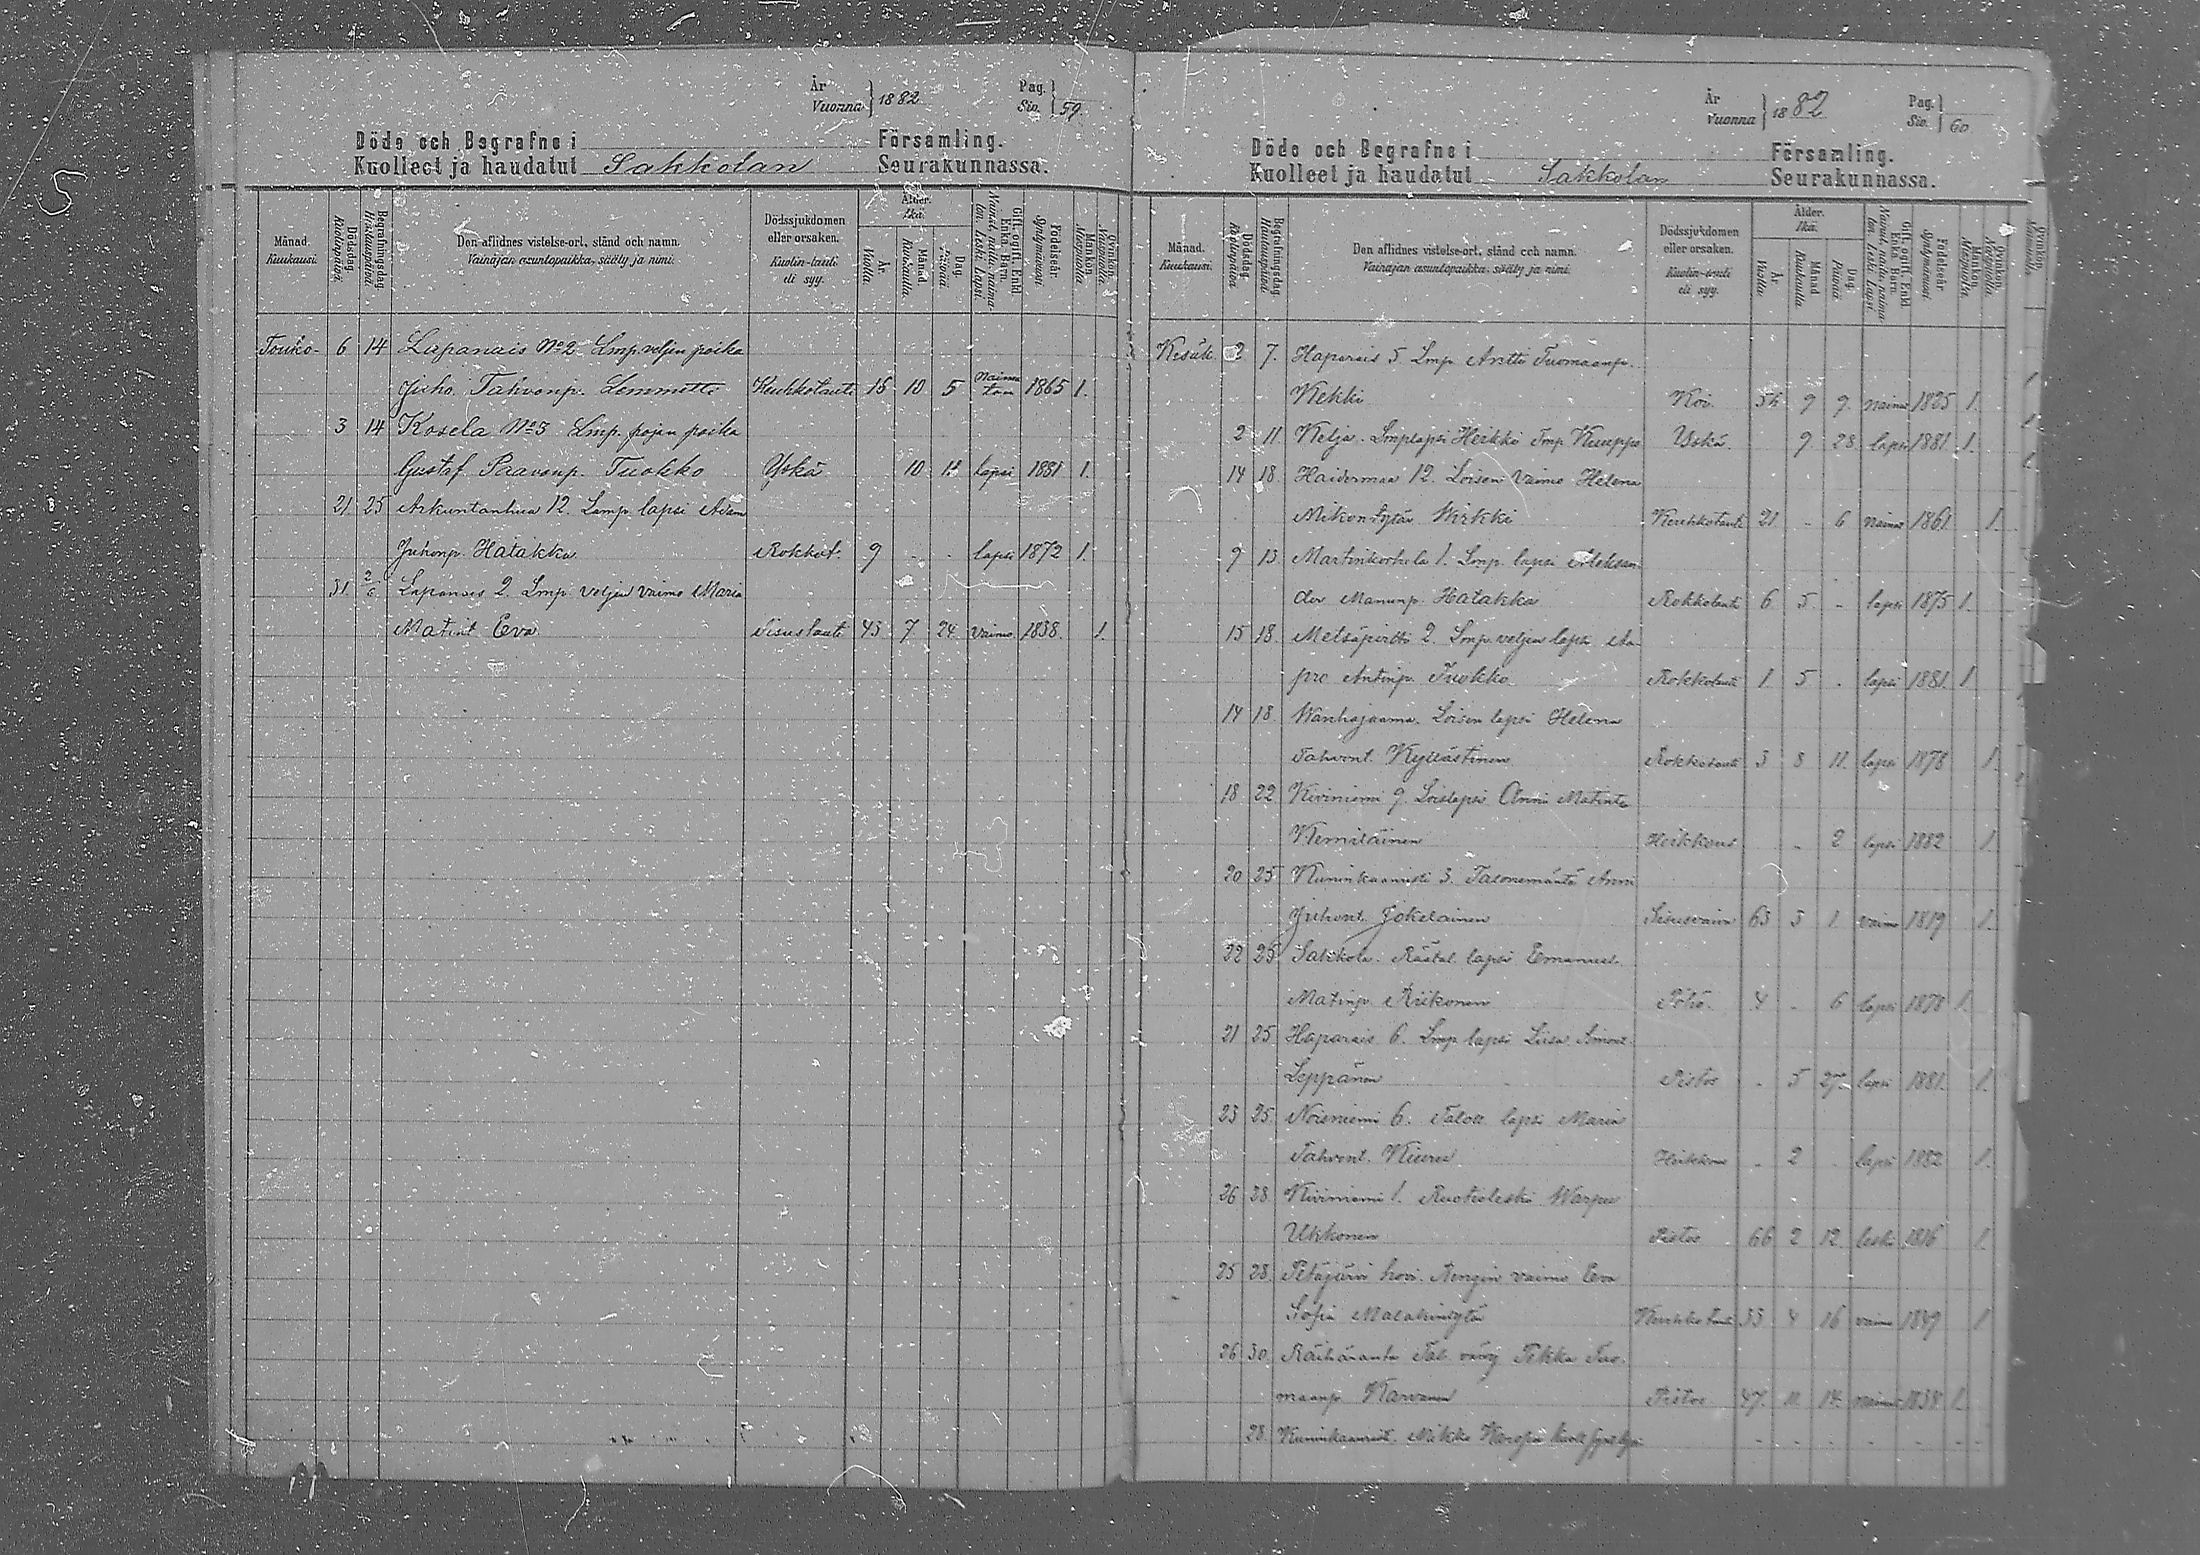 År
Vuonna } 1882
Pag.
Siv. } 59.
Döde och Begrafne i Församling.
Kuolleet ja haudatut Sakkolan Seurakunnassa.
Månad. Kuukausi.
Dödsdag Kuolinpäivä.
Begrafningsdag Hautauspäivä.
Den aflidnes vistelse-ort, stånd och namn.
Vainajan asuntopaikka, sääty ja nimi.
Dödssjukdomen eller orsaken.
Kuolin-tauti eli syy.
Ålder. Ikä.
År Vuotta
Månad Kuukautta
Dag Päivää
Gift, ogift, Enkl. Enka. Barn.
Födelseår. Syntymävuosi.
Mankön Miespuolta.
Qvinkön. Naispuolta.
Touko- 6 14 Lapanais No 2 Lmp. veljen poika
Juho Tahvonp. Lemmetti Keuhkotauti 16 10 5 Naima ton 1865 1.
3 14 Kosela No 5 Lmp. pojan poika
Gustaf Paavonp. Tuokko Yskä 10 11 lapsi 1881 1.
21. 25 Arkuntanhua 12. Lamp. lapsi Adam
Juhonp. Hatakka Rokkot. 9 - - lapsi 1872 1.
31. 2/6 Lapanais 2. Lmp. veljen vaimo Maria
Matint. Eva Sisustauti 43 7 24 vaimo 1838. 1.
År
Vuonna } 1882
Pag.
Siv. } 60
Döde och Begrafne i Församling.
Kuolleet ja haudatut Sakkolan Seurakunnassa.
Månad. Kuukausi.
Dödsdag Kuolinpäivä.
Begrafningsdag Hautauspäivä.
Den aflidnes vistelse-ort, stånd och namn.
Vainajan asuntopaikka, sääty ja nimi.
Dödssjukdomen eller orsaken.
Kuolin-tauti eli syy.
Ålder. Ikä.
År Vuotta
Månad Kuukautta
Dag Päivää
Gift, ogift, Enkl. Enka. Barn.
Födelseår. Syntymävuosi.
Mankön Miespuolta.
Qvinkön. Naispuolta.
Kesäk. 2 7. Haparais 5 Lmp. Antti Tuomaanp.
Kekki Koi. 56 9 9. naim 1825 1.
2 11 Kelja. Lmp lapsi Heikki Kauppo Yskä 9 28 lapsi 1881. 1.
14 18. Haidermaa 12. Loisen vaimo Helena
Mikon tytär Wirkki Keuhkotauti 21 - 6 naim 1861 1.
9 13 Martinkorhela 1. Lmp. lapsi Aleksan-
der Manunp. Hatakka Rokkotauti 6 5 - lapsi 1875 1.
15 18. Metsäpirtti 2. Lmp. veljen lapsi Aa-
pro Antinp. Tuokko Rokkotauti 1 5 - lapsi 1881. 1
14 18. Wanhajaama. Loisen lapsi Helena
Tahvont. Kyllästinen Rokkotauti 3 8 11. lapsi 1878 1.
18 22 Kiviniemi 9. Loislapsi Anni Matint.
Kemiläinen Heikkous - 2 lapsi 1882 1.
20 25 Kuninkaanristi 3. Talonemäntä Anni
Juhont. Jokelainen Sisusvaiva 63 3 1. vaim 1819 1.
22 25 Sakkola. Räätal. lapsi Emanuel
Matinp. Riikonen Pöhö. 4 - 6 lapsi 1878 1.
21 25 Haparais 6. Lmp. lapsi Liisa Simont.
Leppänen Pistos - 5 27 lapsi 1881. 1.
23 25 Noisniemi 6. Talon lapsi Maria
Tahvont. Kiuru Heikkous - 2 - lapsi 1882 1.
26 28. Kiviniemi 1. Ruotioleski Warpu
Ukkonen Pistos 66 2 12. leski 1816 1.
25 28. Petäjärvi hovi. Rengin vaimo Eva
Sofia Malakintytär Keuhkotauti 33 4 16 vaim 1849 1
26 30. Räihäranta Tal. vävy Pekka Tuo-
maanp. Karvanen Pistos 47. 11 14. naim 1838 1.
28. Kuninkaanrist. Mikko - - - - - -